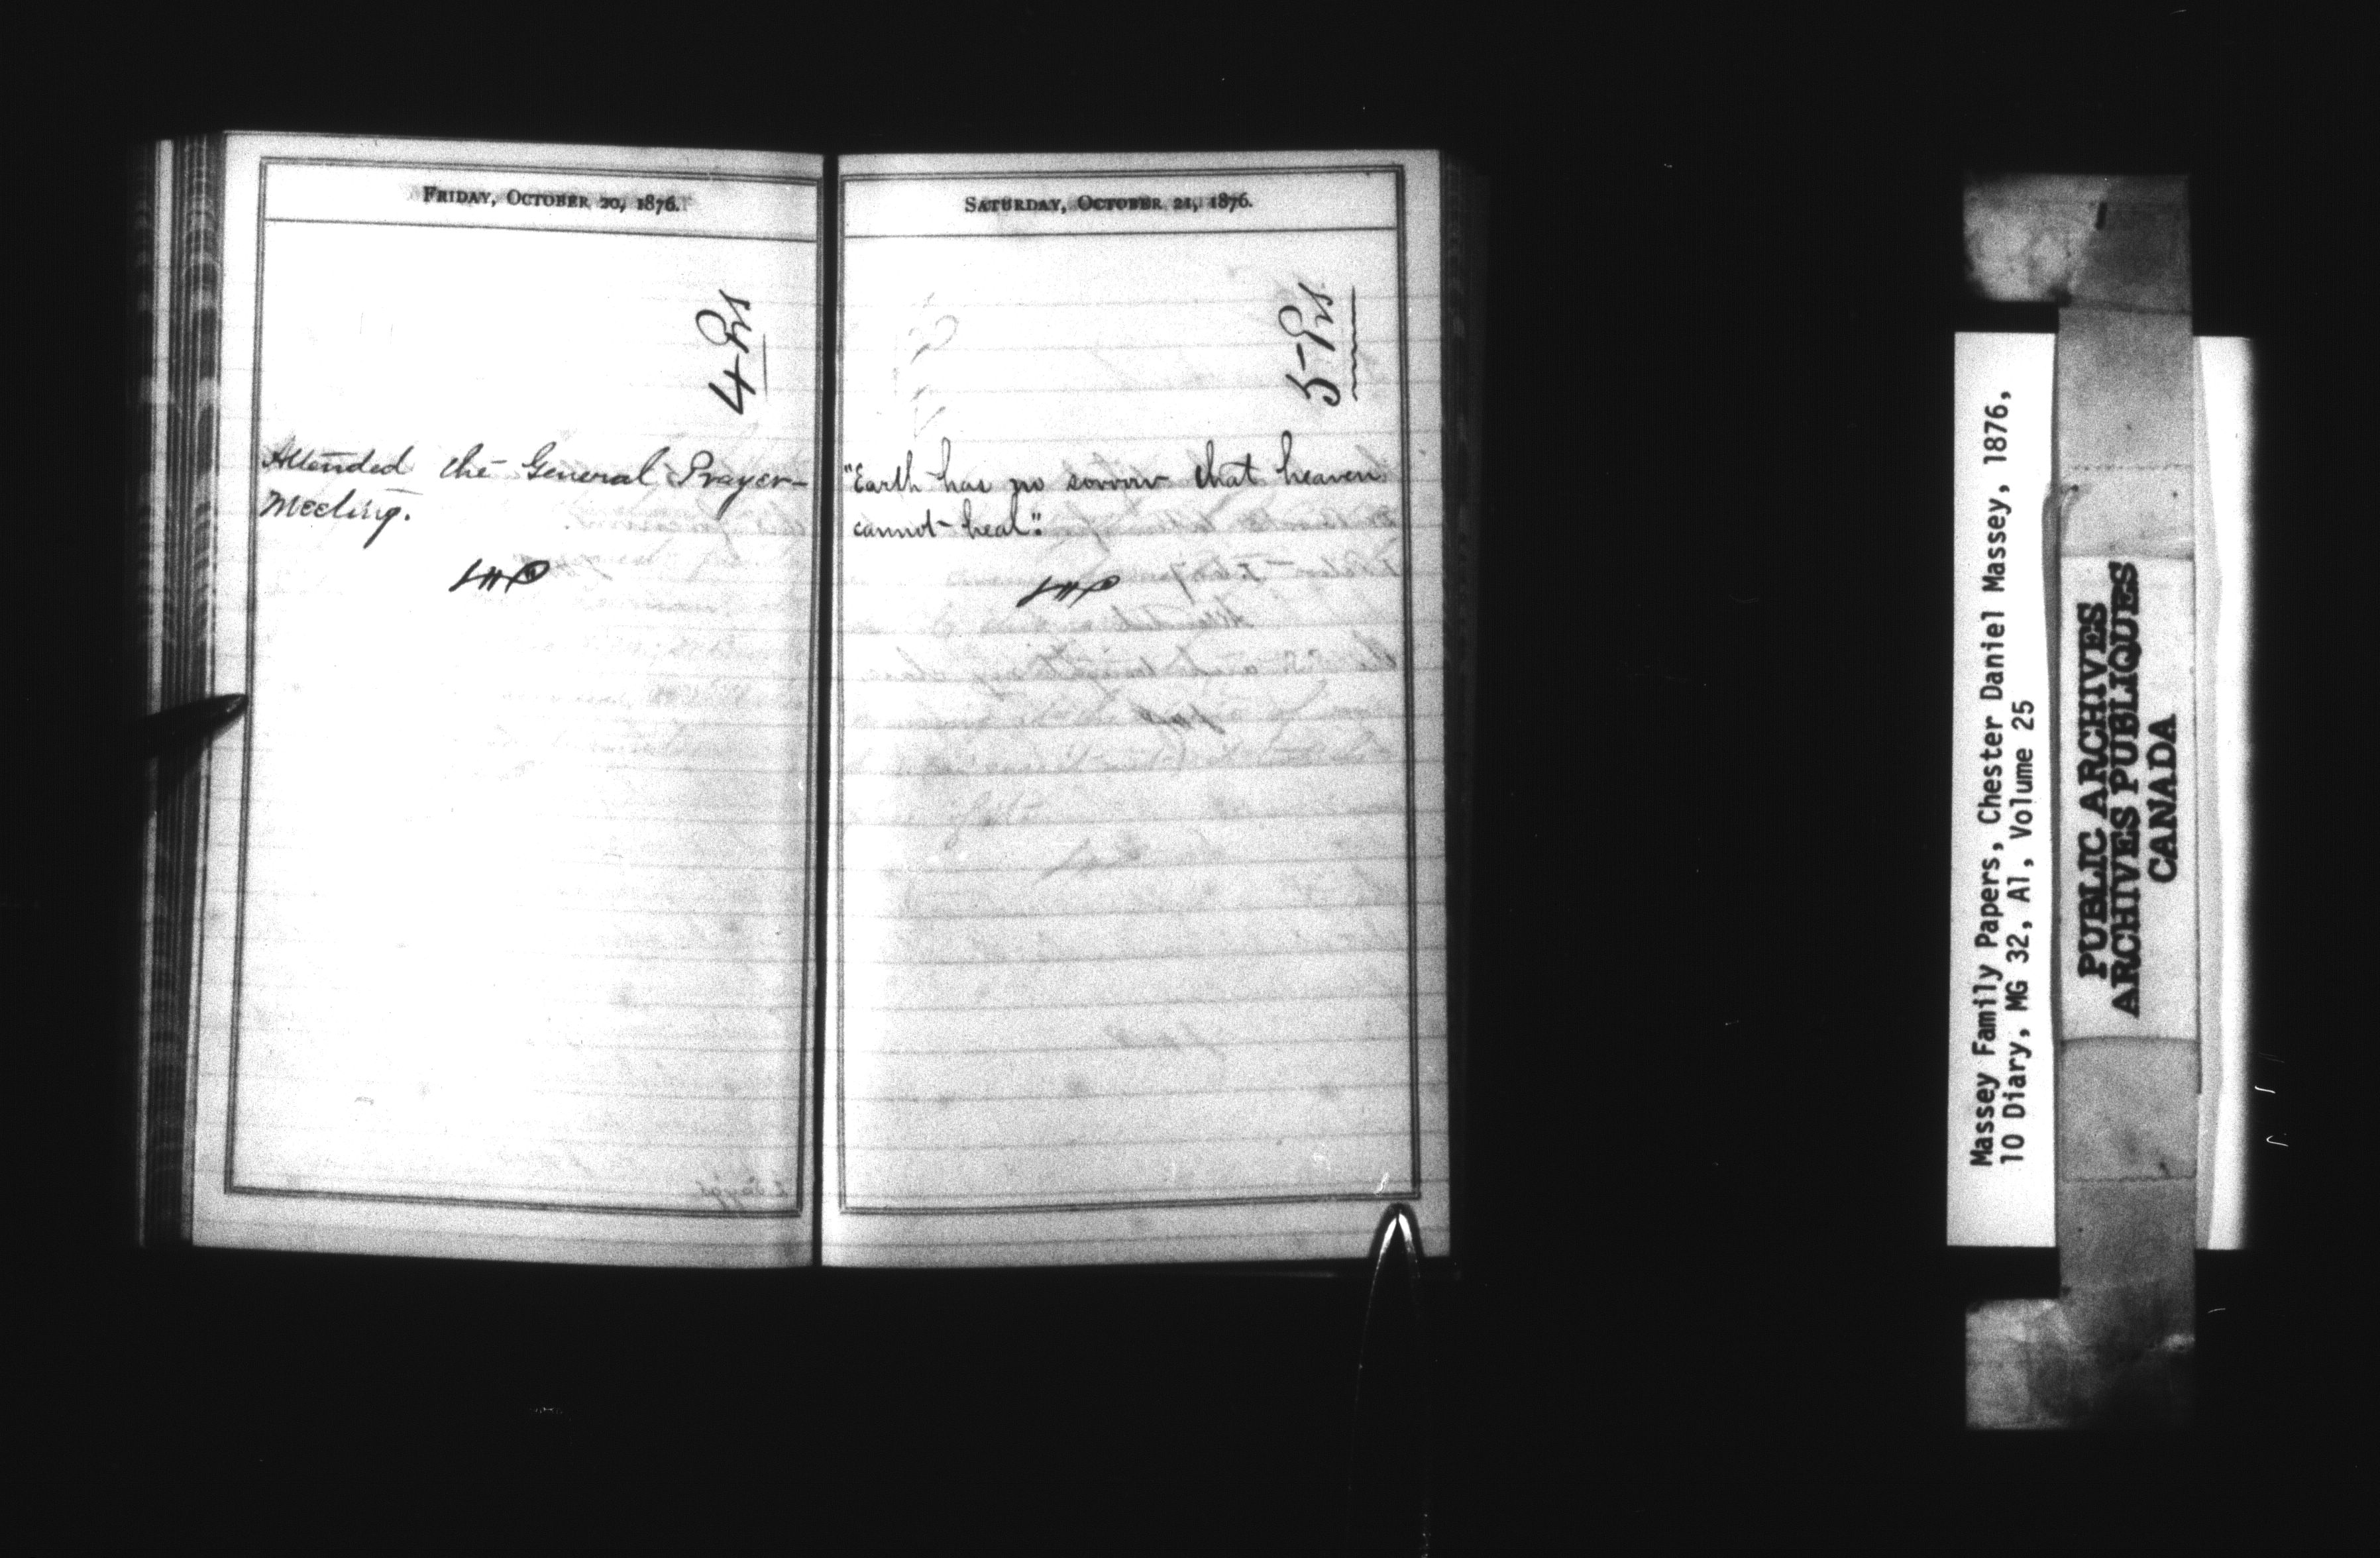 FRIDAY, OCTOBER 20, 1876.
4 Prs
Attended the General Prayer-
Meeting.
SATURDAY, OCTOBER 21, 1876.
5 Prs
"Earth has no sorrow that heaven
cannot heal".
Massey Family Papers, Chester Daniel Massey, 1876,
10 Diary, MG 32, A1, Volume 25
PUBLIC ARCHIVES
ARCHIVES PUBLIQUES
CANADA